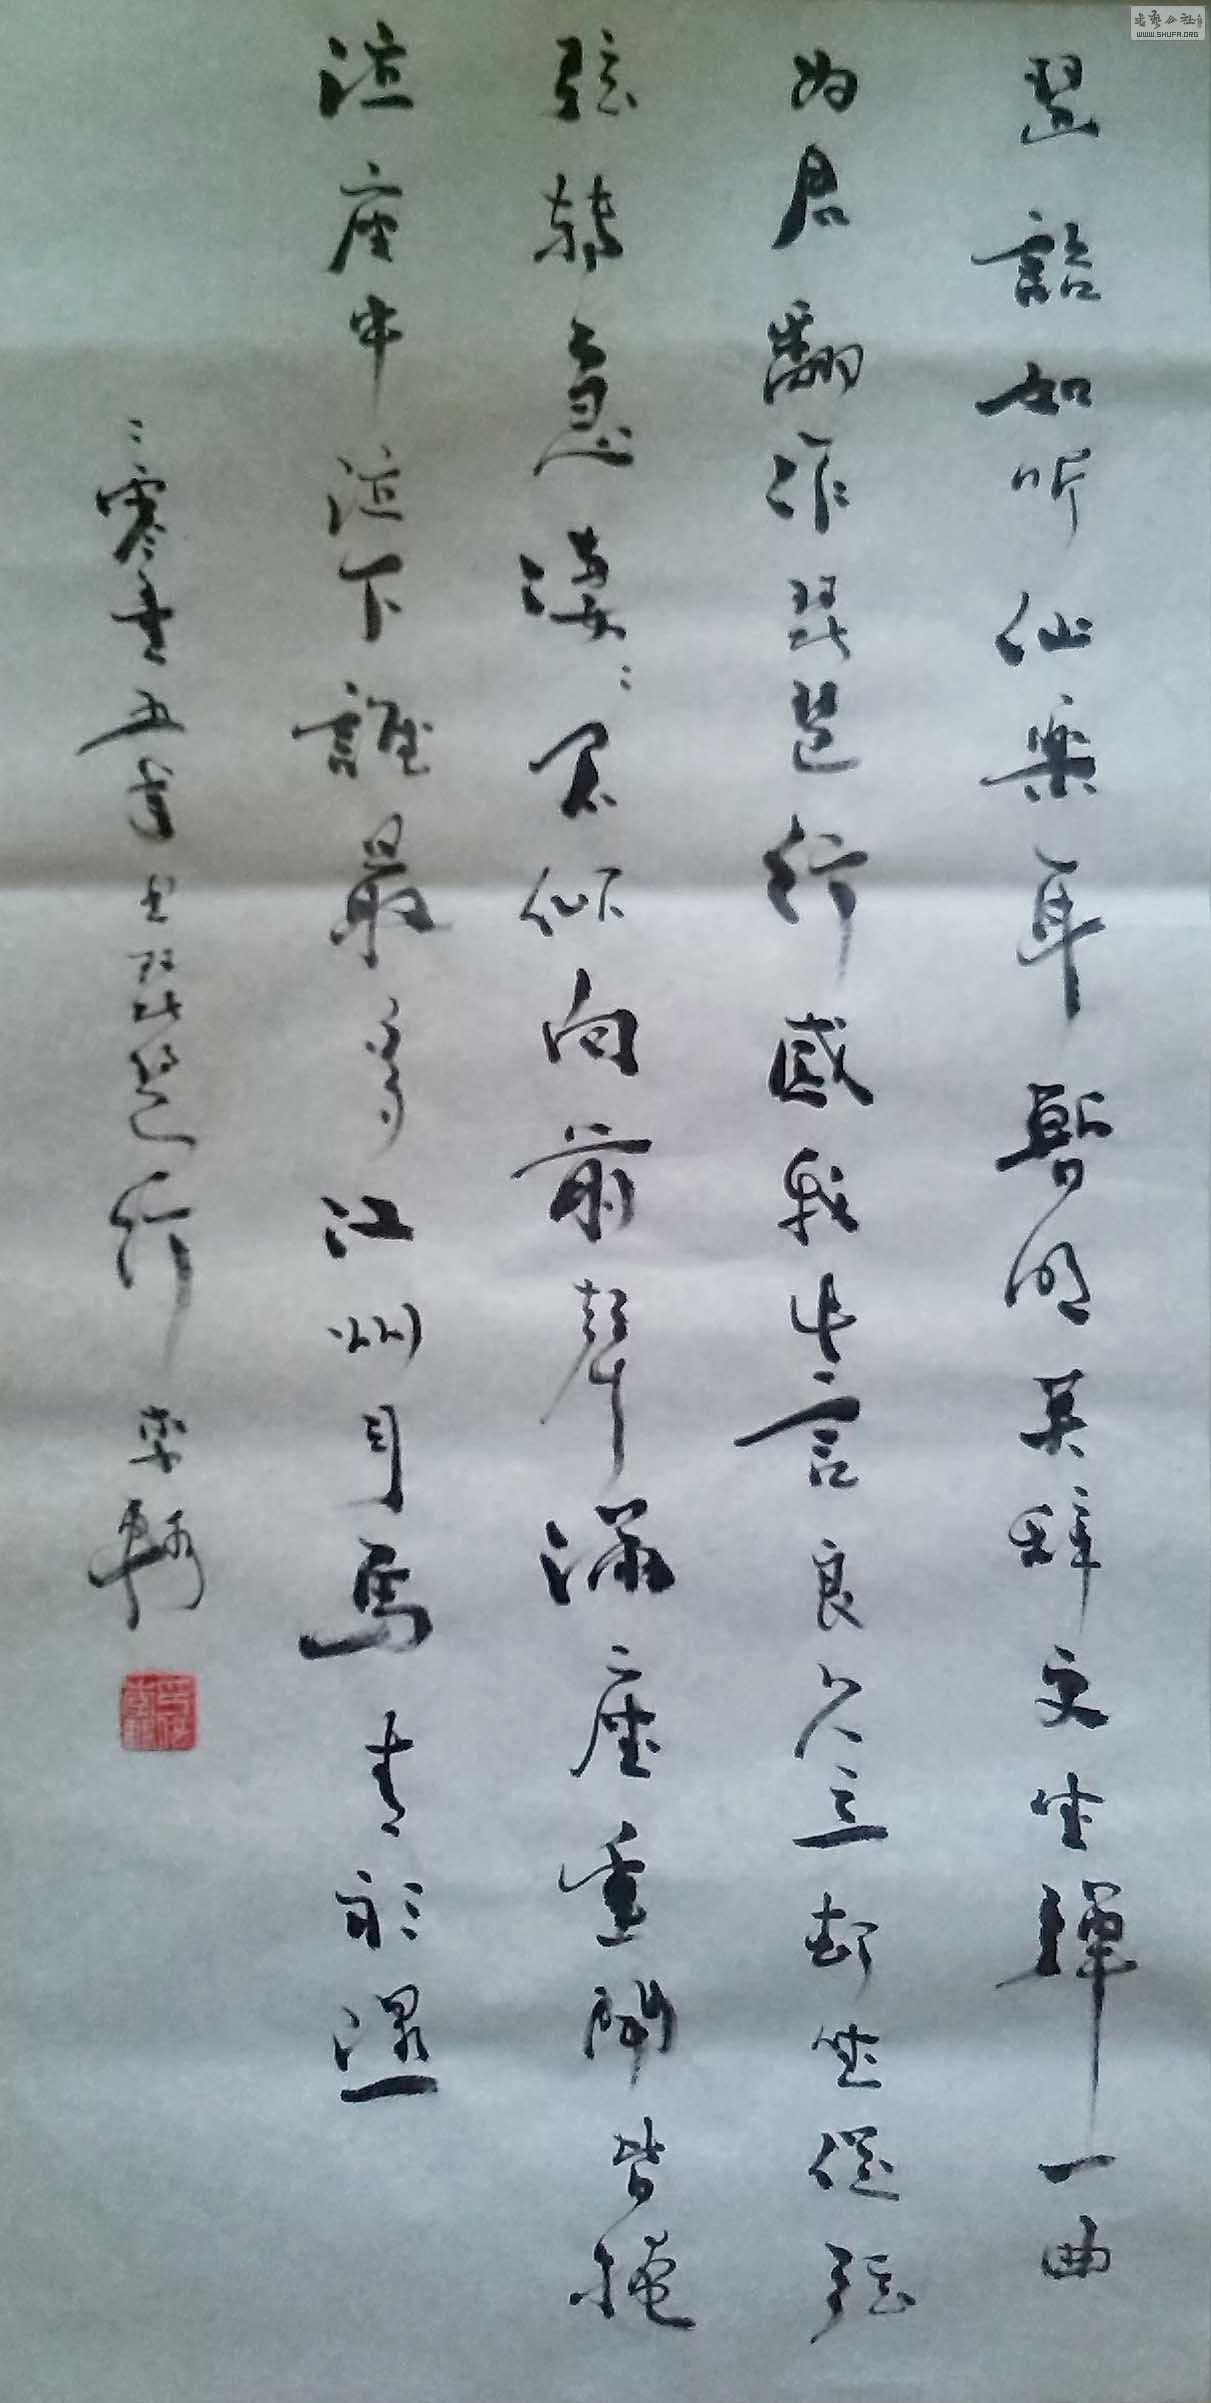 書藝公社
WWW.SHUFA.ORG
琶語如听仙樂耳暫明莫辞更坐彈一曲
为君翻作琵琶行感我此言良久立却坐促弦
弦轉急凄々不似向前聲滿座重聞皆掩
泣座中泣下誰最多江州司馬青衫濕
二零壹五年书琵琶行